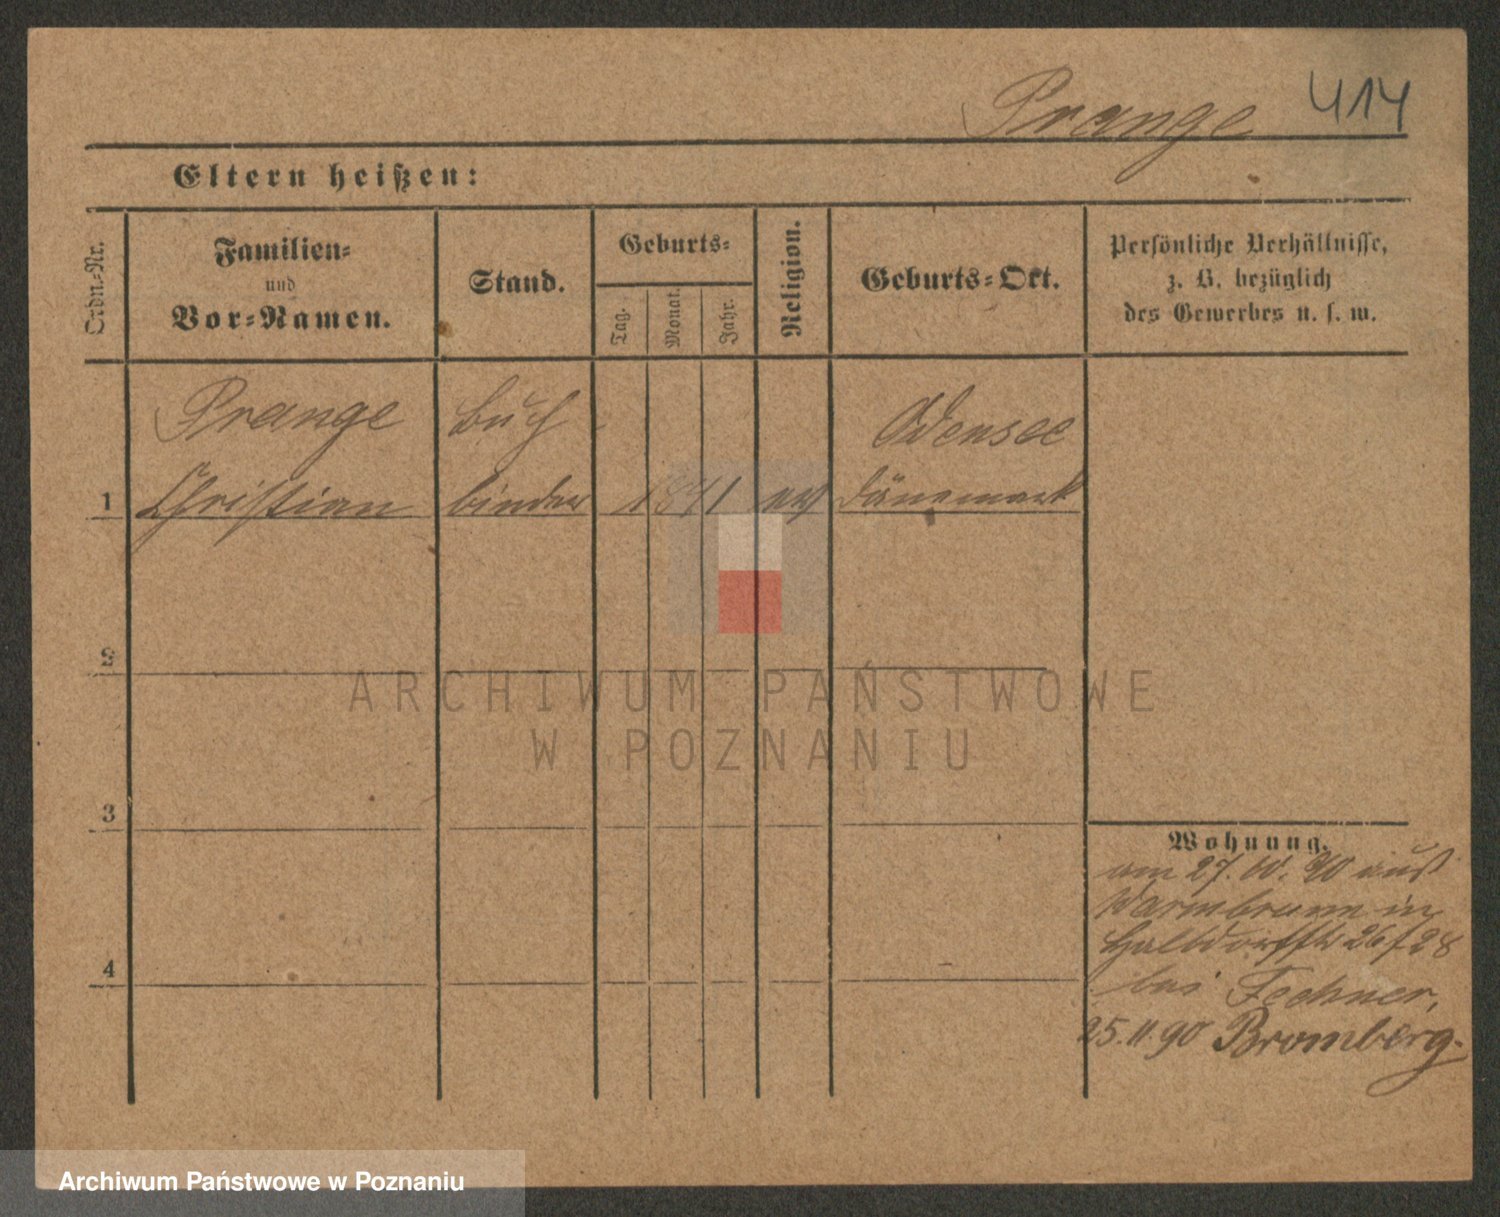 Prange 414
Eltern heißen:
Ordn.-Nr.
Familien-
und
Vor-Namen.
Stand.
Geburts-
Tag.
Monat.
Jahr.
Religion.
Geburts-Ort.
Persönliche Verhältnisse,
z. B. bezüglich
des Gewerbes u. s. w.
Prange Buch Odensee
1 Christian binder 1841 ev Dänemark
2
3
4
Wohnung.
am 27. 10. 90 aus
Warmbrunn in
Halbdorffstr 26/28
bei Fechner,
25.11.90 Bromberg.
ARCHIWUM PAŃSTWOWE
W POZNANIU
Archiwum Państwowe w Poznaniu